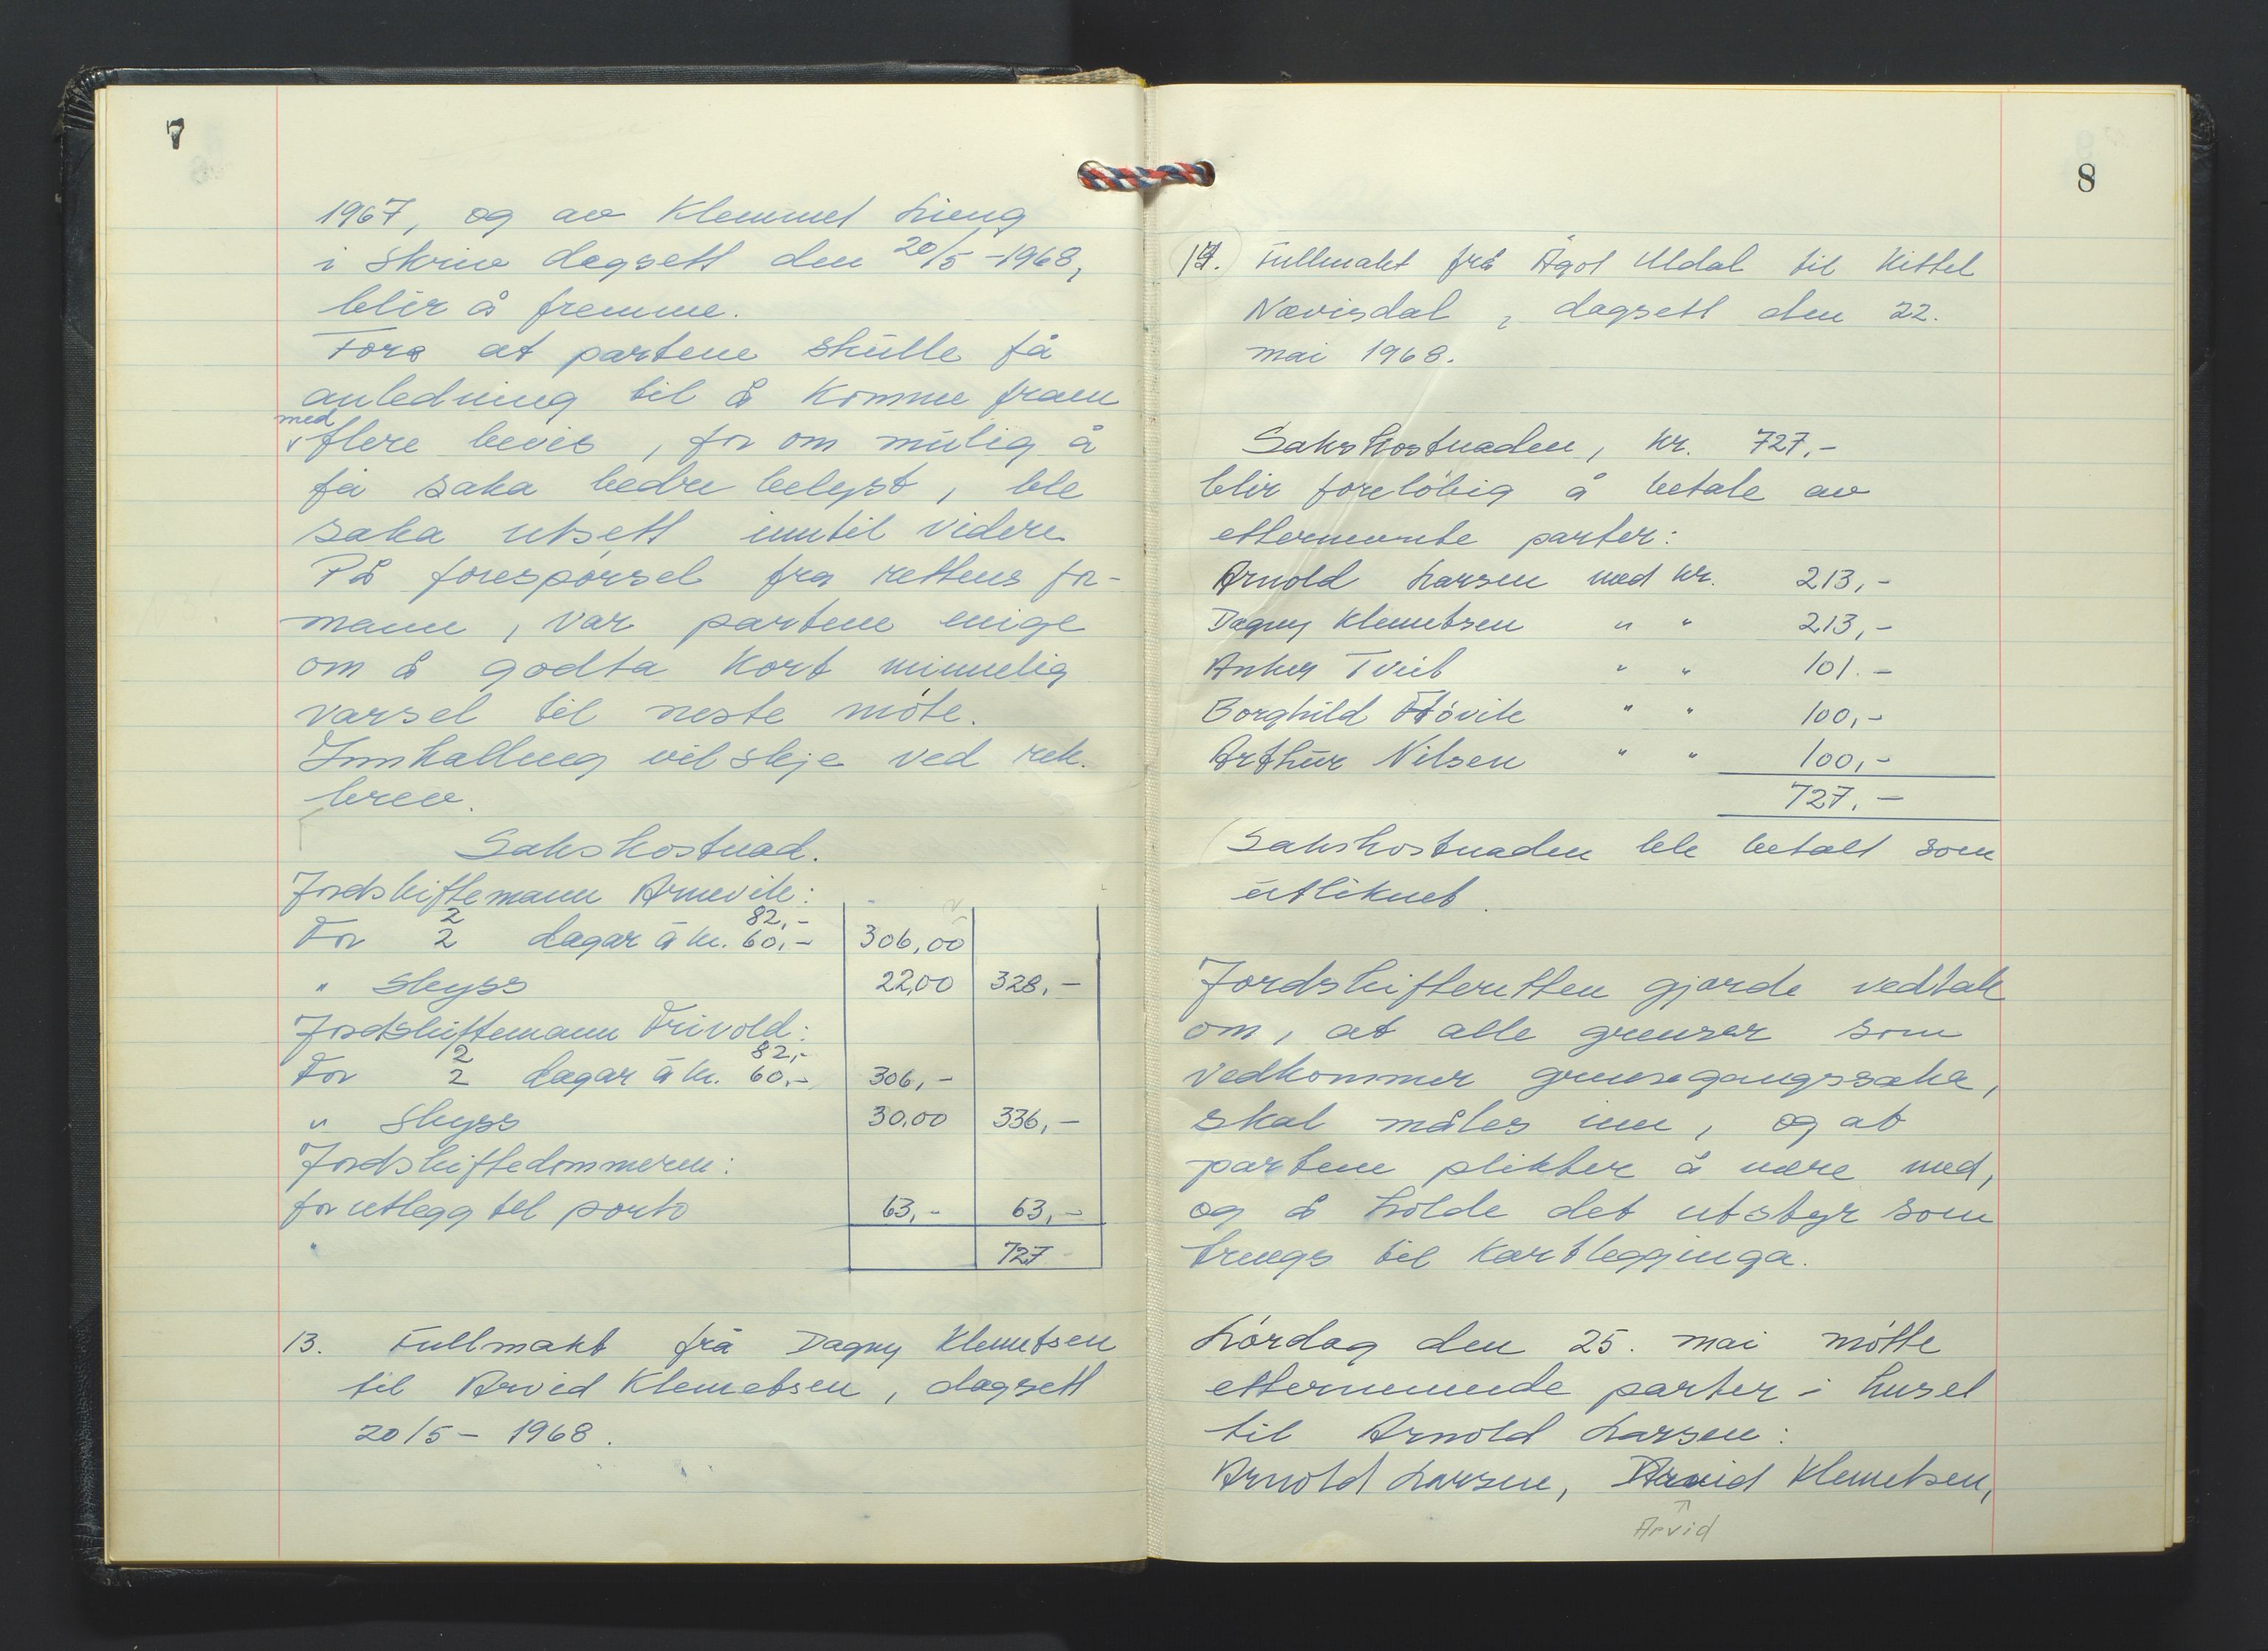 7
1967, og av Klemmet Lieng
i skriv dagsett den 20/5-1968,
blir å fremme.
For at partene skulle få
anledning til å komme fram
med
v flere bevis, for om mulig å
få saka bedre belyst, ble
saka utsett inntil videre.
På forespørsel fra rettens for-
mann, var partene enige
om å godta kort minnelig
varsel til neste møte.
Innkalling vil skje ved rek.
brev.
Sakskostnad.
Jordskiftemann Arnevik:
2 82,-
For 2 dagar à kr. 60,- 306,00
" Skyss 22,00 328,-
Jordskiftemann Trivold:
2 82,-
For 2 dagar à kr. 60,- 306,-
" Skyss 30,00 336,-
Jordskiftedommeren:
for utlegg til porto 63,- 63,-
" 727
13. Fullmakt frå Dagny Klemetsen
til Arvid Klemetsen, dagsett
20/5 - 1968.
8
14. Fullmakt frå Ågot Uldal til Kittel
Nævisdal, dagsett den 22.
mai 1968.
Sakskostnaden, kr. 727,-
blir foreløbig å betale av
etternemnte parter:
Arnold Larsen med kr. 213,-
Dagny Klemetsen " " 213,-
Anker Tveit " " 101.-
Borghild Håvik " " 100,-
Arthur Nilsen " " 100,-
727,-
Sakskostnaden ble betalt som
utliknet.
Jordskifteretten gjorde vedtak
om, at alle grenser som
vedkommer grensegangssaka,
skal måles inn, og at
partene plikter å være med,
og å holde det utstyr som
trengs til kartlegginga.
Lørdag den 25. mai møtte
etternemnde parter i huset
til Arnold Larsen:
Arnold Larsen, Arvid Klemetsen,
Arvid